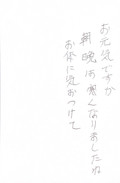 お元気ですか
朝晩は寒くなりましたね
お体に気おつけて